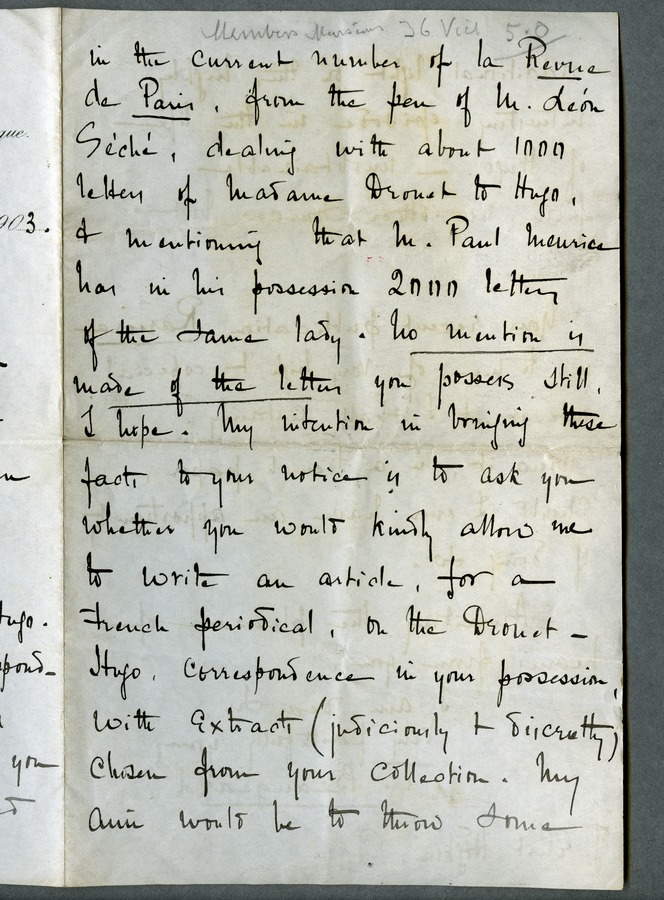 Members Mansions 36 Vict 5.0
in the current number of la Revue
de Paris, from the pen of M. Léon
Séché, dealing with about 1000
letters of Madame Drouet to Hugo,
& mentioning that M. Paul Meurice
has in his possession 2000 letters
of the same lady. No mention is
made of the letters you possess still,
I hope. My intention in bringing these
facts to your notice is to ask you
whether you would kindly allow me
to write an article, for a
French periodical, on the Drouet-
Hugo. Correspondence in your possession,
with Extracts (judiciously & discreetly)
Chosen from your Collection. My
aim would be to throw some
que.
903.
Hugo.
spond-
you